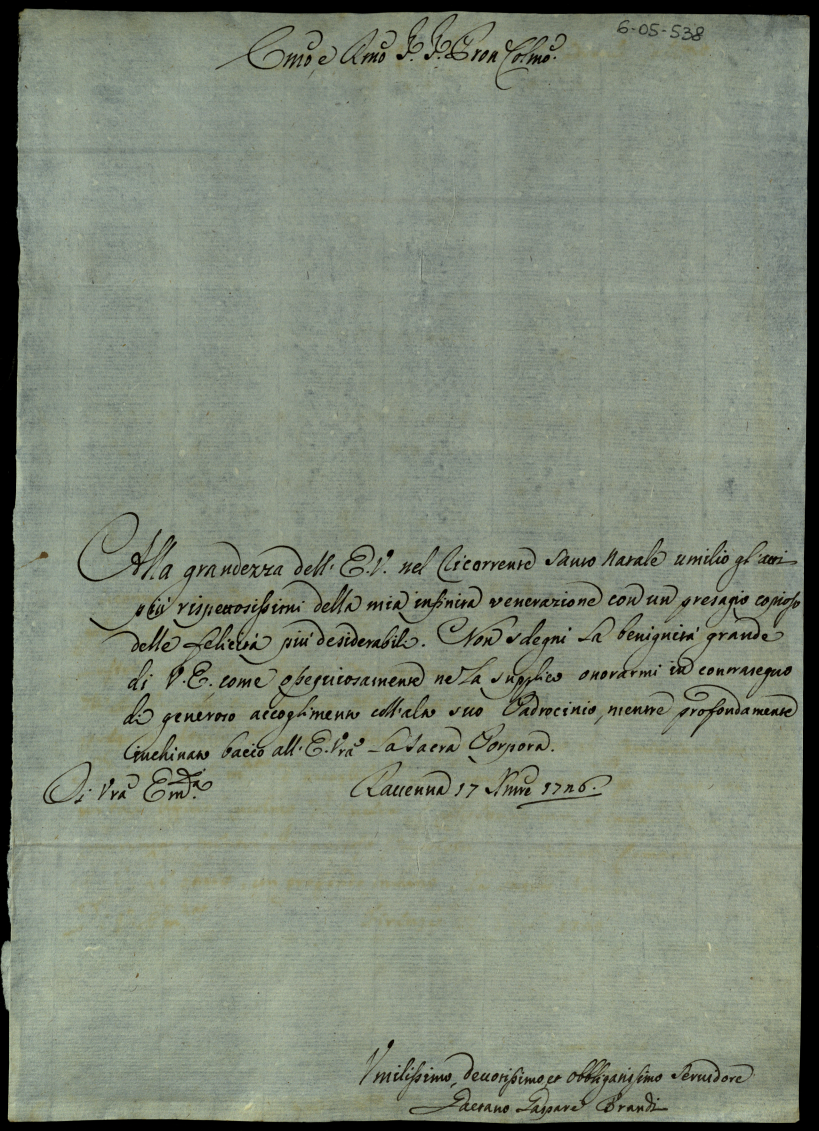 6-05-538
Emo, e Rmo Sr. Sr. Pron Colmo.
Alla grandezza dell' E.V. nel ricorrente Santo Natale umilio gl'atti
più rispettosissimi della mia infinita venerazione con un presagio copioso
delle felicità più desiderabili. Non sdegni la benignità grande
di V.E. come ossequiosamente ne la supplico onorarmi in contrasegno
di generoso accoglimento coll'alto suo Padrocinio, mentre profondamente
inchinato bacio all'E. Vra la Sacra Porpora.
Di Vra Emza
Ravenna 17 Xmre 1726.
Umilissimo, devotissimo, et obbligatissimo Servidore
Gaetano Gaspare Brandi